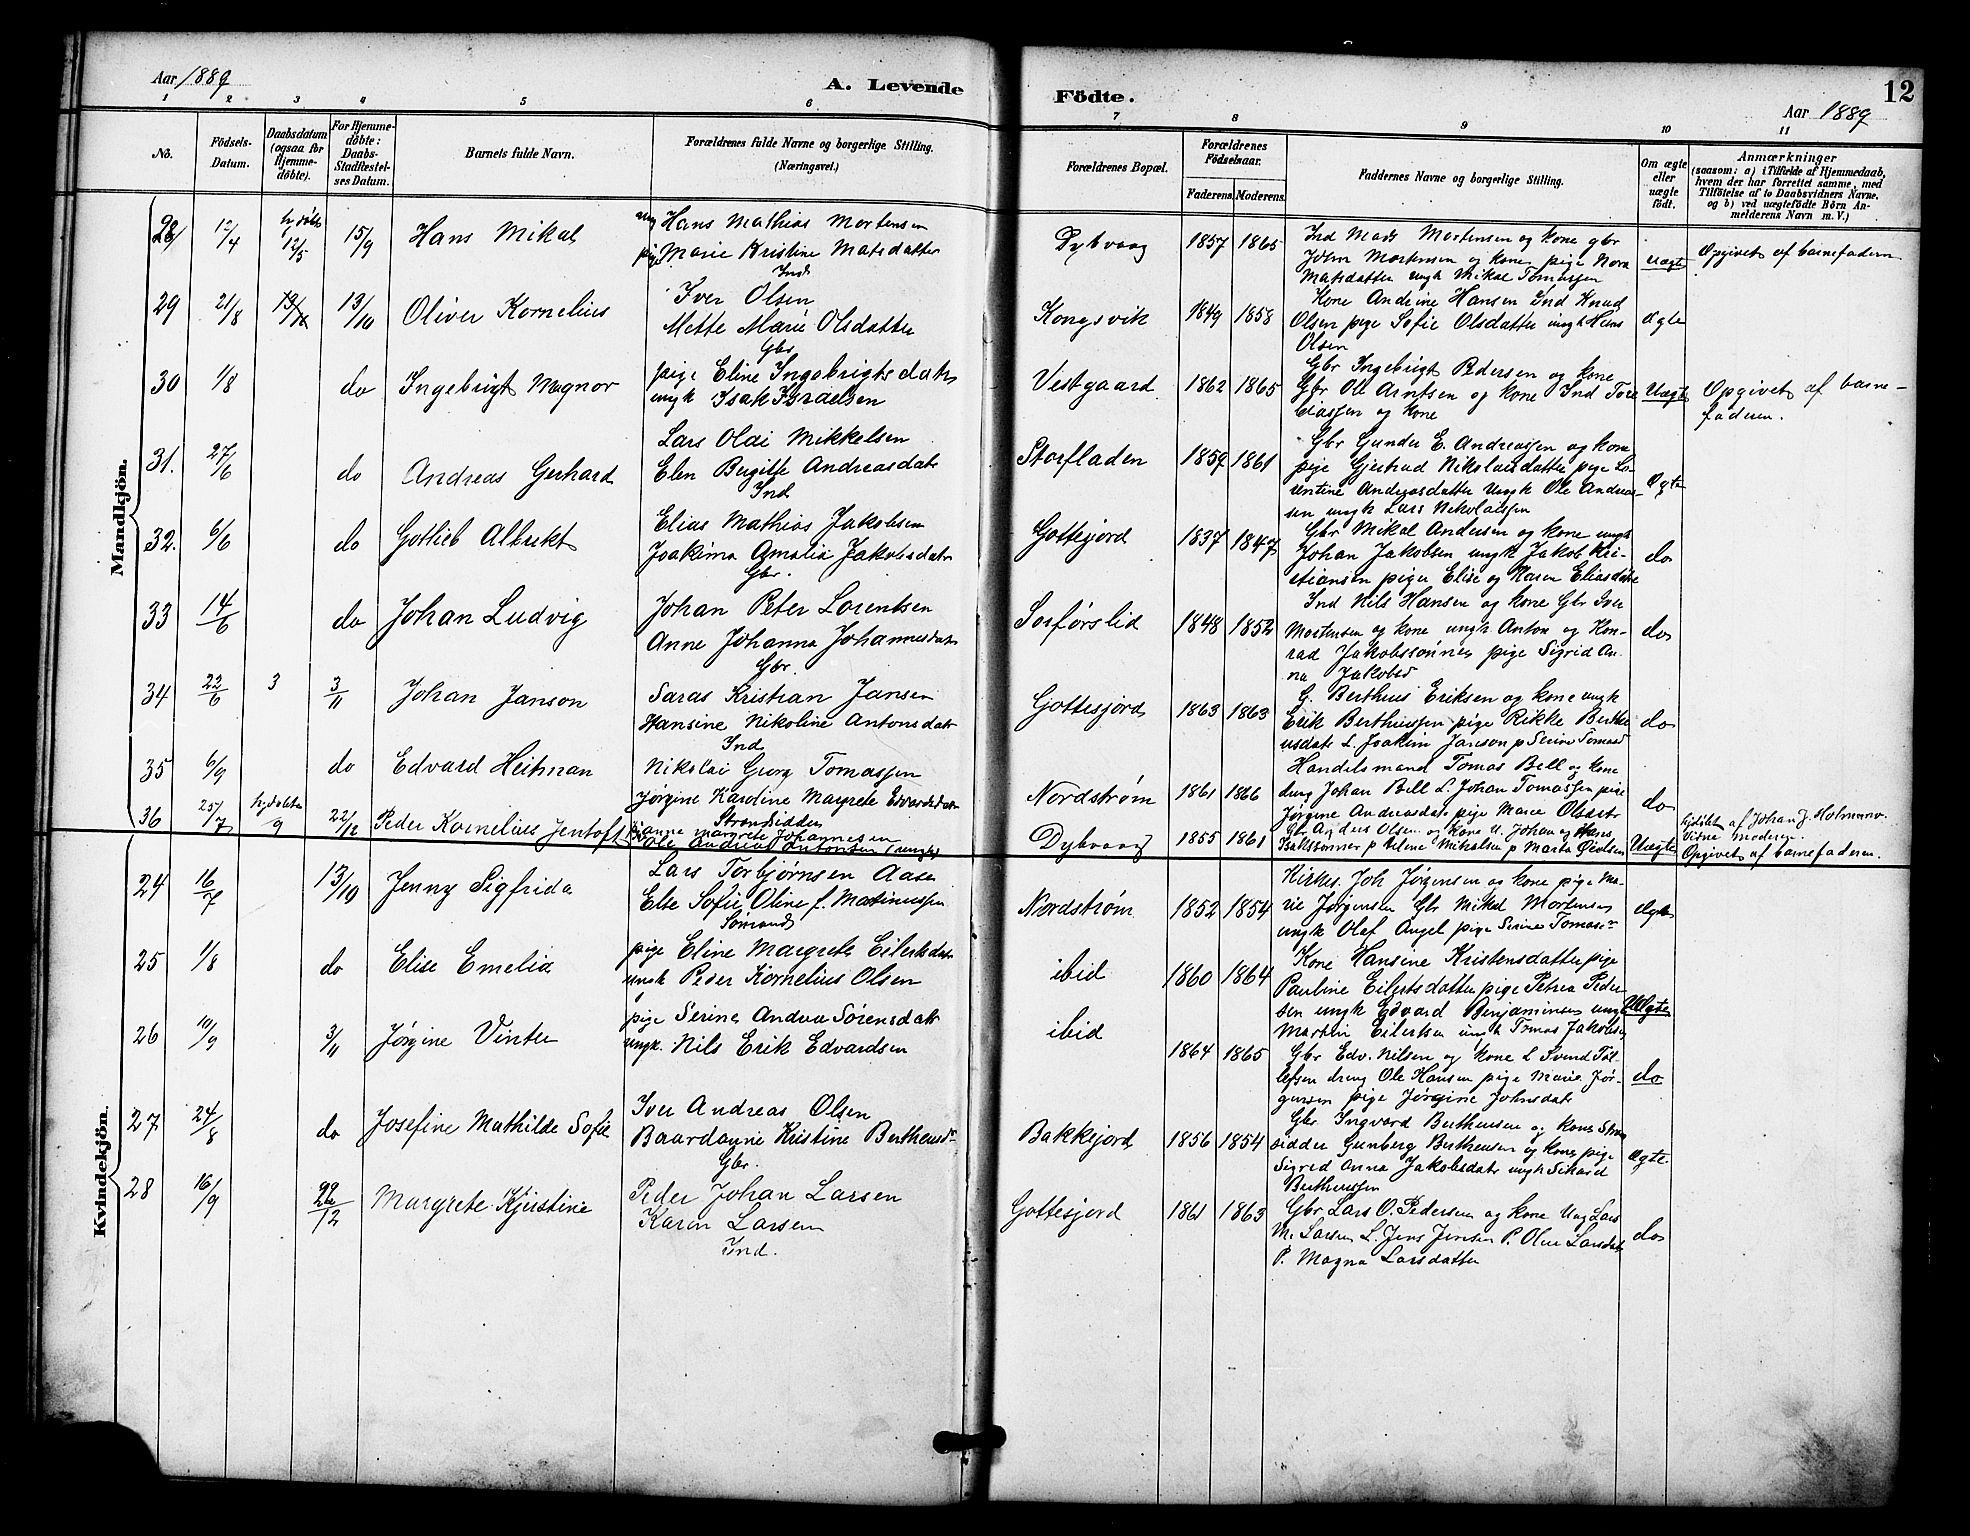 Aar 1889
A. Levende Födte.
12
Aar 1889
1 2 3 4 5 6 7 8 9 10 11
No.
Födsels-Datum.
Daabsdatum (ogsaa for Hjemme-döbte).
For Hjemme-döbte: Daabs-Stadfæstel-ses Datum.
Barnets fulde Navn.
Forældrenes fulde Navne og borgerlige Stilling.
(Næringsvei.)
Forældrenes Bopæl.
Forældrenes Födselsaar.
Faderens. Moderens.
Faddernes Navne og borgerlige Stilling.
Om ægte eller uægte födt.
Anmærkninger
(saasom: a) i Tilfælde af Hjemmedaab,
hvem der har forrettet samme, med
Tilföielse af to Daabsvidners Navne.
og b) ved uægtefödte Börn An-
melderens Navn m. V.)
Mandkjön.
28 /4 hjdöbt 12/5 15/9 Hans Mikal
ung Hans Mathias Mortensen
pige Marie Kristine Matsdatter
Ind
Dybvaag 1857 1865
Ind Mads Mortensen og kone gbr
John Mortensen og kone pige Nora
Matsdatter ungk Mikal Tomassen
Uægte
Opgivet af barnefaderen
29 21/8 13/10 Oliver Kornelius
Iver Olsen
Mette Marie Olsdatter
Gbr
Kongsvik 1849 1858
Kone Andrine Hansen Ind Knud
Olsen pige Sofie Olsdatter ungk Hans
Olsen
Ægte
30 1/8 do Ingebrigt Magnor
pige Eline Ingebrigtsdatr
ungk Isak Israelsen
Vestgaard 1862 1865
Gbr Ingebrigt Pedersen og kone
Gbr Ole Arntsen og kone Ind Tore
Eliassen og kone
Uægte
Opgivet af barne-
faderen.
31. 27/6 do Andreas Gerhard
Lars Olai Mikkelsen
Elen Birgitte Andreasdatr
Ind
Storfladen 1859 1861
Gbr Gunder E. Andreassen og kone
pige Gjertrud Nikolaisdatter pige Lo-
rentine Andreasdatter Ungk Ole Andrea-
sen ungk Lars Nikolaisen
Ægte
32. 6/6 do Gotlieb Albrekt
Elias Mathias Jakobsen
Joakima Amalia Jakobsdatr
Gbr.
Gottesjord 1837 1847
Gbr Mikal Andersen og kone ungk
Johan Jakobsen ungk Jakob Kri-
stiansen piger Elise og Karen Eliasdötre
do
33 14/6 do Johan Ludvig
Johan Peter Lorentsen
Anne Johanna Johannesdatr
Gbr.
Sorförslid 1848 1852
Ind Nils Hansen og kone Gbr Iver
Mortensen og kone ungk Anton og Kon-
rad Jakobssönner pige Sigrid An-
na Jakobsd
do
34 22/6 3 3/11 Johan Janson
Saras Kristian Jansen
Hansine Nikoline Antonsdatr
Ind
Gottesjord 1863 1863
G. Bertheus Eriksen og kone ungk
Erik Bertheussen pige Rikke Berthe-
usdatr L. Joakim Janson p Serine Tomasd
do
35 6/9 do Edvard Heitman
Nikolai Georg Tomassen
Jørgine Karoline Margrete Edvardsdatr
Strandsidder
Nordstrøm 1861 1866
Handelsmand Tomas Bell og kone
dreng Johan Bell L. Johan Tomassen pige
Jørgine Andreasdatr pige Marie Olsdatr
do
36 25/7 hjdøbt 9 22/12 Peder Kornelius Jentoft
Anne Margrete Johannesen
Ole Andreas Antonsen (ungk)
Dybvaag 1855 1861
Gbr Anders Olsen og kone U. Johan og Hans
Uægte
hjdøbt af Johan J. Holmenvo.
Vidne moderen.
Opgivet af barnefaderen.
Kvindekjön.
24 16/7 13/10 Jenny Sigfrida
Lars Torbjørnsen Aasen
Else Sofie Oline f. Martinussen
Sømand
Nordstrøm 1852 1854
Kirkes. Joh Jørgensen og kone pige Ma-
rie Jørgensen Gbr Mikal Mortensen
ungk Olaf Angel pige Serine Tomasen
Ægte
25 1/8 do Elise Emelia
pige Eline Margrete Eilertsdatr
ungk Peder Kornelius Olsen
ibid 1860 1864
Kone Hansine Kristensdatter pige
Pauline Eilertsdatter pige Petrea Peder-
sen ungk Edvard Benjaminsen ungk
Martin Eilertsen ungk Tomas Jakobsen
Uægte
26 10/9 3/11 Jørgine Vinter
pige Serine Andrea Sørensdatr
ungk. Nils Erik Edvardsen
ibid 1864 1865
Gbr Edv. Nilsen og kone L Svend Tøl-
lefsen dreng Ole Hansen pige Marie Jør-
gensen pige Jørgine Johnsdatr
do
27 24/8 do Josefine Mathilde Sofie
Iver Andreas Olsen
Baardanne Kristine Bertheusdr
Gbr.
Bakkejord 1856 1854
Gbr Ingvard Bertheusen og kone Strand-
sidder Gunberg Bertheusen og kone pige
Sigrid Anna Jakobsdatr ungk Sihard
Bertheussen
Ægte
28 16/9 22/12 Margrete Kjerstine
Peder Johan Larsen
Karen Larsen
Ind.
Gottesjord 1861 1863
Gbr Lars O. Pedersen og kone Ung Lars
M. Larsen L. Jens Jensen P. Oline Larsdatr
P. Magna Larsdatter
do